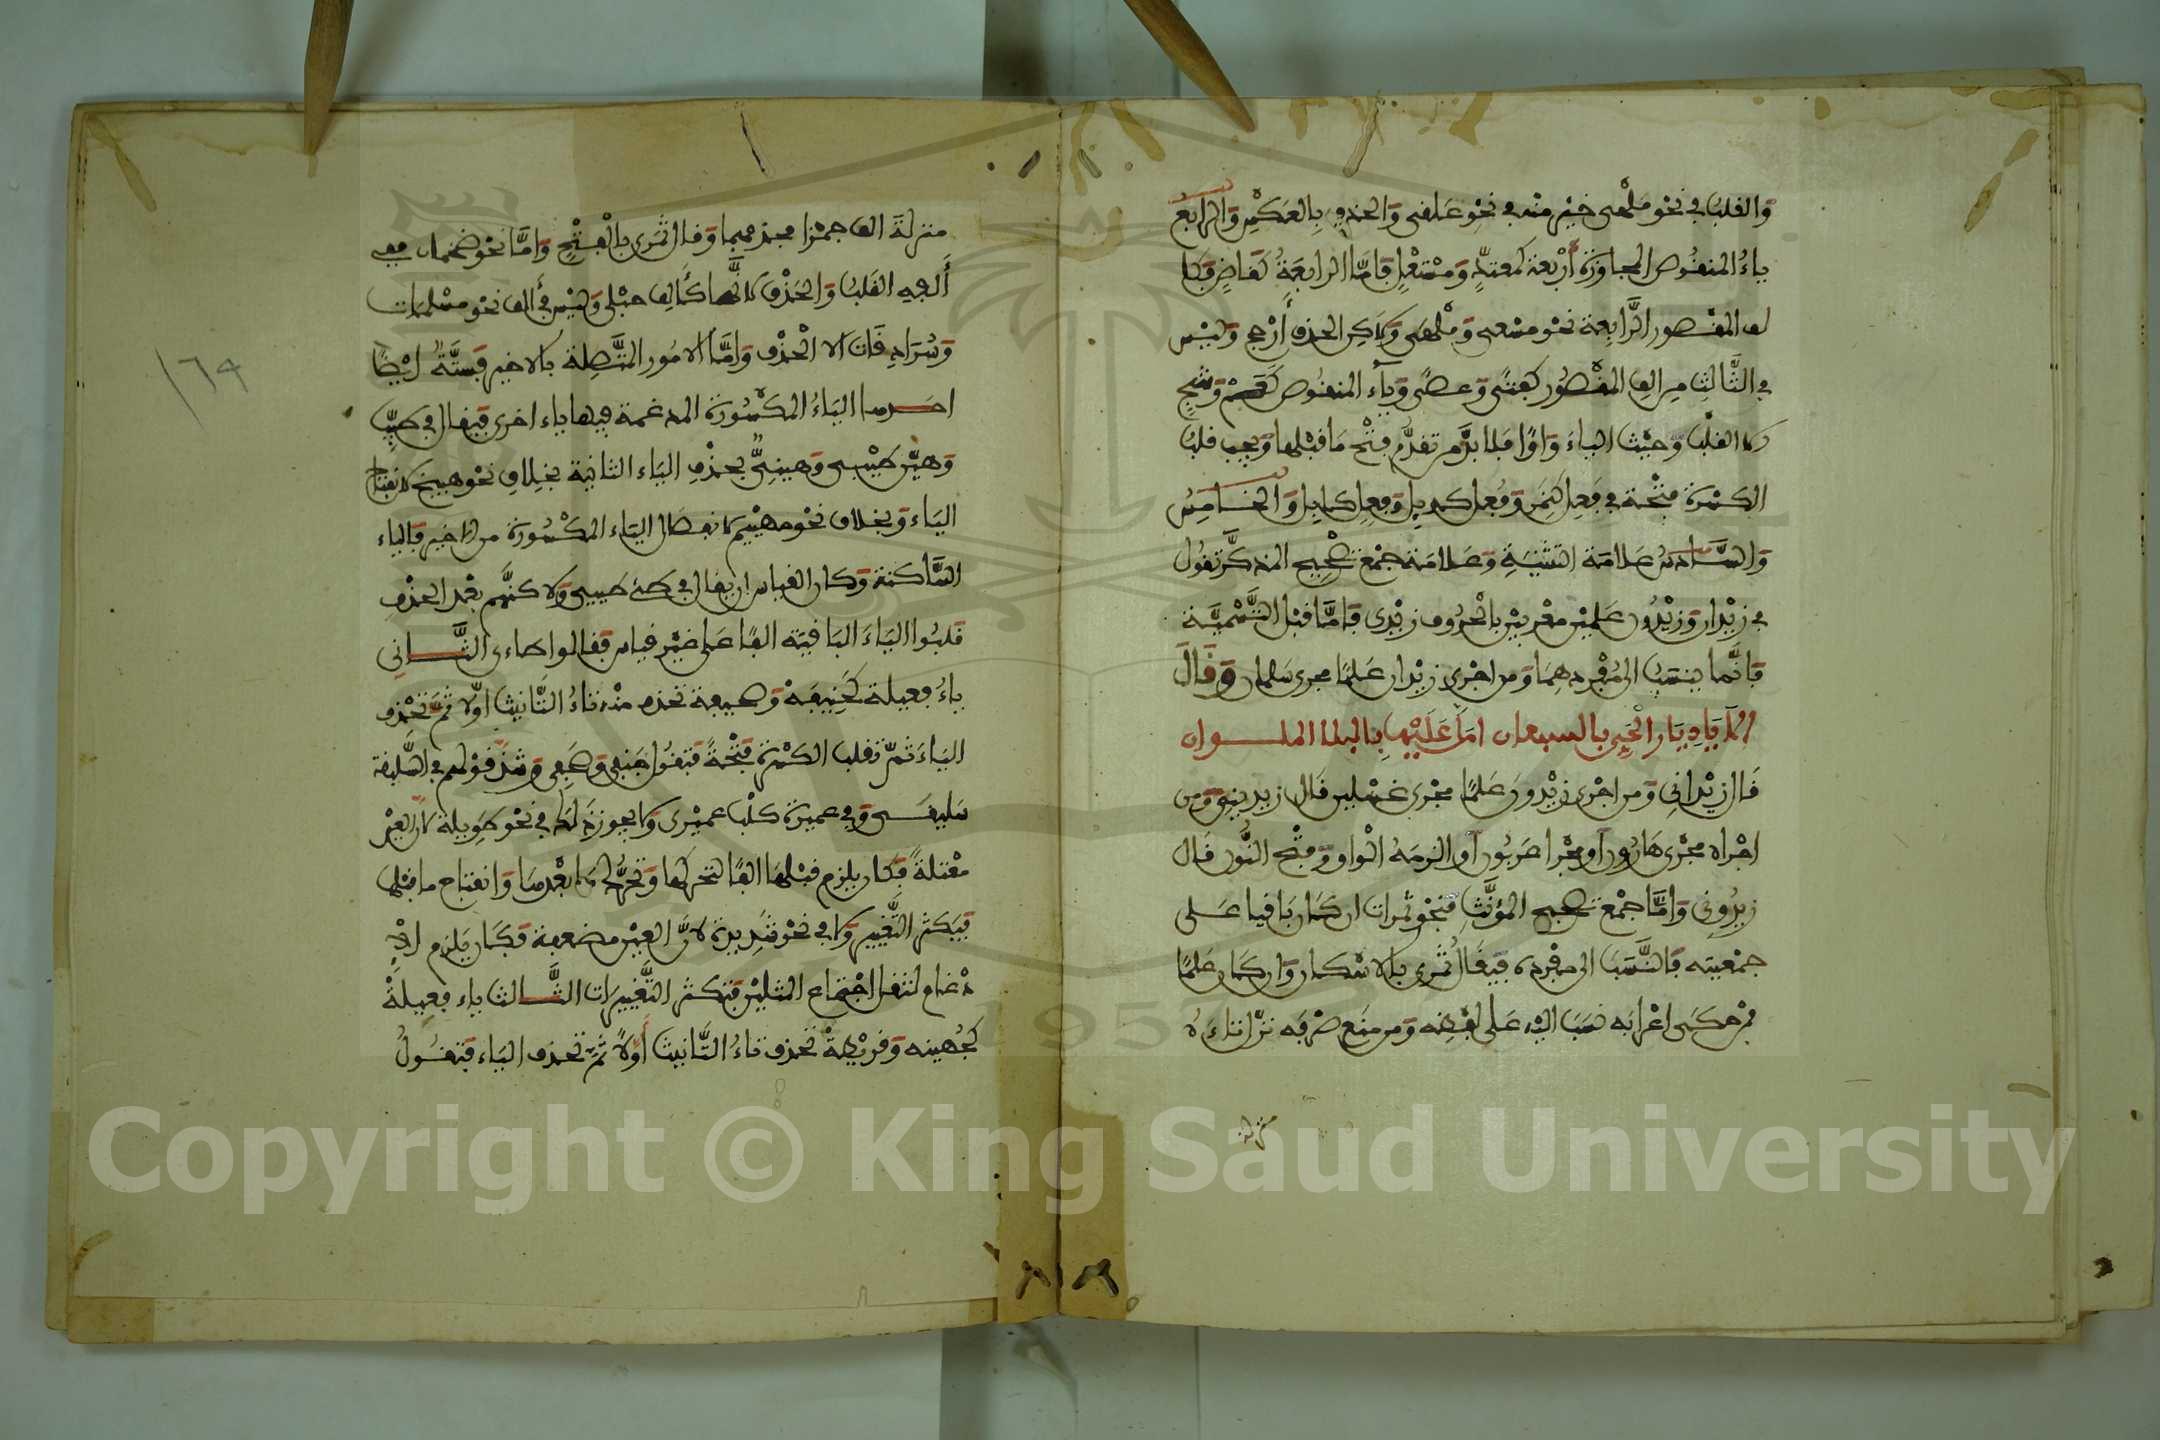 وَالقلبُ في نحو مَلْهى خيْر منه في نحو عَلقى وَالحذف بِالعَكْسِ وَالرابعُ
ياءُ المنقُوص المجاوزة أرْبعة كمعتدٍ وَمسْتعْلٍ فَامّا الرابعَةُ كقاضٍ فكا
لف المقصور الرَّابِعة نحو مسْعى وَمَلْهى وَلاكن الحذف أَرْجح وَليْس
في الثَّالثِ من الف المقْصُور كفتًى وَعصًى وَيآء المنقُوص كَعَمْ وَشَجٍ
الا القلْب وَحيْث الياءَ وَاوًا فلا بدَّ من تقدُّم فتْح مَا قبْلها وَيجب قلبُ
الكسْرة فتْحة في فَعِل كنَمَر وَفُعِل كدئل وَفِعِل كابِل وَالخامِسُ
وَالسَّادسُ علامَة التثنيَةِ وَعَلامَة جمْع تصْحِيح المذكَّر تقُول
في زيْدان وَزيْدُون علميْن معْربيْن بالحُرُوف زيْدى فَامَّا قبْل التَّسْميَّة
فَانَّما ينسَبُ الى مُفْردهِمَا وَمن اجْرى زيْدان عَلمًا مجرى سَلمان وَقَالَ
الآ يَا دِيَار الحَيّ بالسبعان امَلّ عَلَيْها بِالبلا الملوان
قَال زيْدانى وَمن اجْرى زيْدون عَلمًا مجْرى غسْلين قَال زيدينى وَمن
اجْراه مجْرى هَارُون أو مجْرا عَربُون أو الزمهُ الْواو وَفتْح النُّون قَال
زيدُونى وَامَّا جمْع تصْحيح المؤنَّثِ فنحْو تمرات ان كَان بَاقيا عَلى
جمْعيته فَالنَّسَب الى مفْرده فيقَال تمْرى بالاسْكان وَان كَان عَلمًا
فمن حكى اعْرابَه نسَبَ اليْه عَلى لفْظه وَمن منَع صرْفه نزّل تاءَهُ
منزلة
منزلةَ الف جمْزا فحذفهما وَقال تَمرى بالْفتْحِ وَامَّا نحْو ضخمات ففى
ألِفهِ القَلبُ وَالحَذْف لانَّها كَألف حبْلى وَليْس في ألف نحْو مسْلمات
وَسُرَادِقات الا الْحذْف وَامَّا الامُور المتَّصِلة بالاخير فَستَّةٌ ايْضًا
احدها اليَاءُ المكْسُورَة المدغمة فيها ياء اخرى فيقال في طيّبٍ
وَهيّن طيْبى وَهينىّ بحذْف اليَاء الثانية بخِلافِ نحْو هبيّخ لانفتاح
اليَاء وَبخلاف نحْو مهيْيم لانفصَال اليَاء المكْسُورَة من الاخير فَالياء
السَّاكنة وَكان القياس ان يقال في طئ طيىى وَلاكنَّهم بعْد الحذْف
قلبُوا اليَاءَ البَاقيَة الفًا عَلى غيْر قياس فقَالوا طاءى الثَّانِى
ياءُ فعيلة كحَنِيفَةْ وَصحيفة تحذف منْه تاءُ التَّانِيث اوّلا ثمَّ تحْذف
اليَاءَ ثمَّ تقلب الكسْرة فَتْحةً فتقُول حَنَفى وَصَحَفى وَشذّ قوْلهم في السَّليقة
سَليقى وَفي عميرة كلْب عميْرى وَلا يجوز ذَلك في نحْو طَوِيلة لانّ العيْن
معْتلةٌ فكَان يلزم قبْلها الفًا لتحركها وَتحرُّك ما بعْدها وَانفتاح ما قبْلها
فيَكثر التَّغيير وَلا في نحْو شدِيدة لانَّ العيْن مضعفة فكَان يَلزم الا
دْغام لثقل اجْتماع المثليْن فتكثر التَّغييرَات الثَّالث ياء فعِيلَةْ
كَجُهينه وَقريْظةْ تحذف تاءُ التَّانيث أوّلاً ثمَّ تحذف اليَاء فتقُولُ
١٦٩